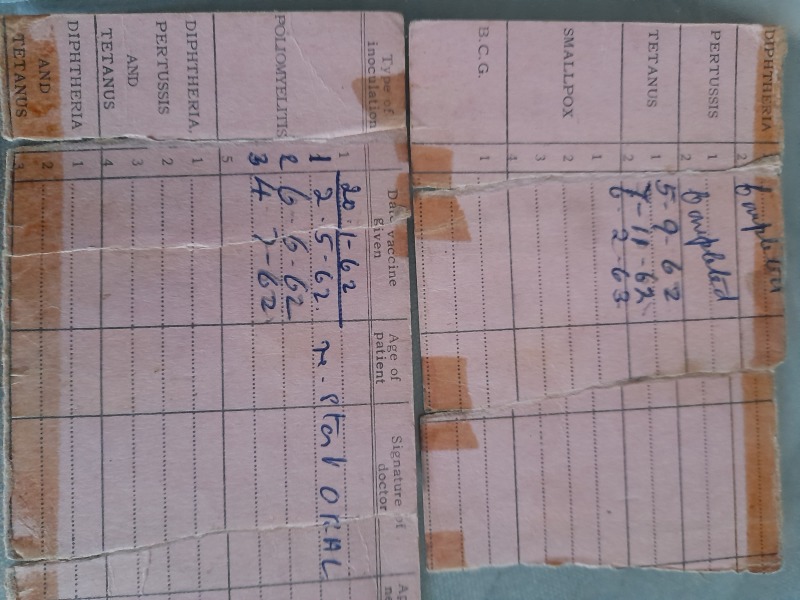 Type of inoculation Date vaccine given Age of patient Signature of doctor
POLIOMYELITIS 1 20-1-62
1 2-5-62. re-start ORAL
2 6-6-62
3 4-7-62
5
DIPHTHERIA. 1
PERTUSSIS 2
AND 3
TETANUS 4
DIPHTHERIA 1
AND 2
TETANUS 3
DIPHTHERIA 2 Completed
PERTUSSIS 1 Completed
2
TETANUS 1 5-9-62
7-11-62
2 6 2-63
SMALLPOX 1
2
3
4
B.C.G. 1